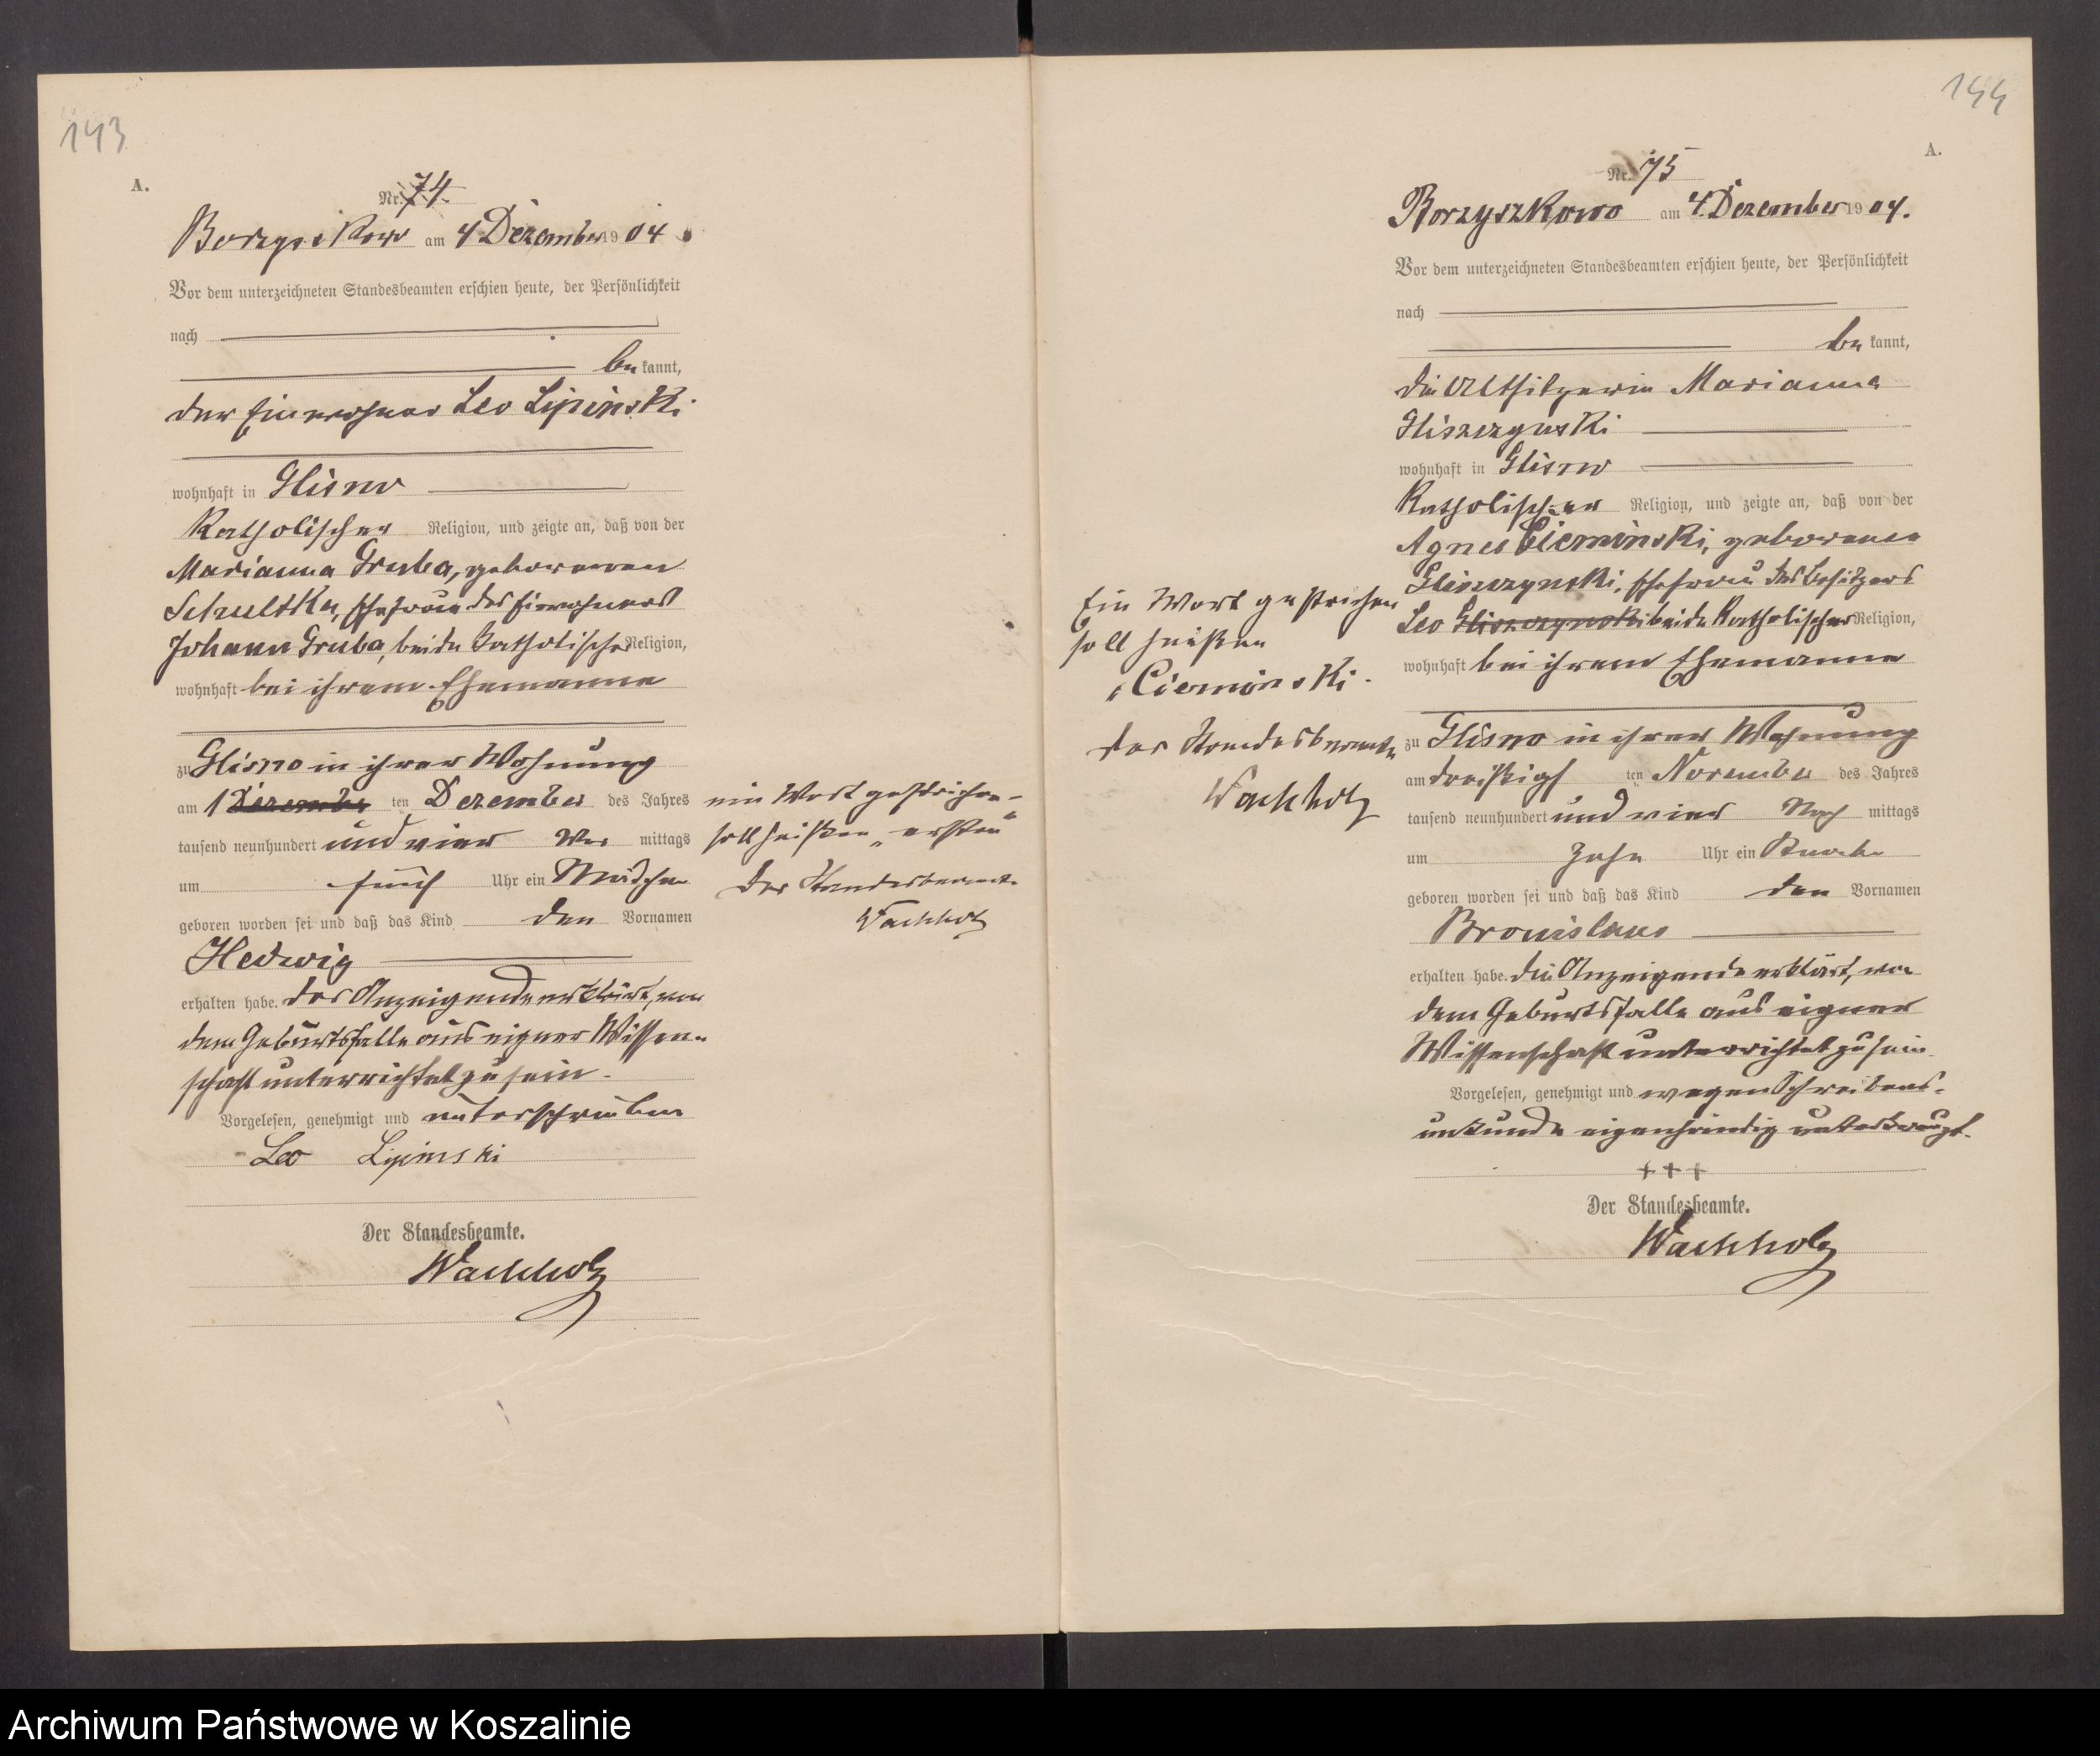 143
A.
Nr. 74
Borzyszkowo am 4 Dezember 1904.
Vor dem unterzeichneten Standesbeamten erschien heute, der Persönlichkeit
nach
be kannt,
der Einwohner Leo Lipinski
wohnhaft in Glisno
Katholischer Religion, und zeigte an, daß von der
Marianna Gruba, geborenen
Schultka, Ehefrau des Einwohners
Johann Gruba, beide katholischer Religion,
wohnhaft bei ihrem Ehemanne
zu Glisno in ihrer Wohnung
am 1 Dezember ten Dezember des Jahres
tausend neunhundert und vier Vor mittags
um fünf Uhr ein Mädchen
geboren worden sei und daß das Kind den Vornamen
Hedwig
erhalten habe. Der Anzeigende erklärt, von
dem Geburtsfalle aus eigner Wissen-
schaft unterrichtet zu sein.
Vorgelesen, genehmigt und unterschrieben
Leo Lipinski
Der Standesbeamte.
Wachholz
ein Wort gestrichen
soll heißen „ersten“
Der Standesbeamte
Wachholz
144
A.
Nr. 75
Borzyszkowo am 4. Dezember 1904.
Vor dem unterzeichneten Standesbeamten erschien heute, der Persönlichkeit
nach
be kannt,
die Altsitzerin Marianna
Gliszczynski
wohnhaft in Glisno
Katholischer Religion, und zeigte an, daß von der
Agnes Cieminski, geborenen
Gliszczynski, Ehefrau des Besitzers
Leo Gliszczynski beide Katholischer Religion,
wohnhaft bei ihrem Ehemanne
zu Glisno in ihrer Wohnung
am dreißigst ten November des Jahres
tausend neunhundert und vier Nach mittags
um Zehn Uhr ein Knabe
geboren worden sei und daß das Kind den Vornamen
Bronislaus
erhalten habe. Die Anzeigende erklärt, von
dem Geburtsfalle aus eigner
Wissenschaft unterrichtet zu sein
Vorgelesen, genehmigt und wegen Schreibens-
unkunde eigenhändig unterkreuzt.
+++
Der Standesbeamte.
Wachholz
Ein Wort gestrichen
soll heißen
„Cieminski.
Der Standesbeamte
Wachholz
Archiwum Państwowe w Koszalinie